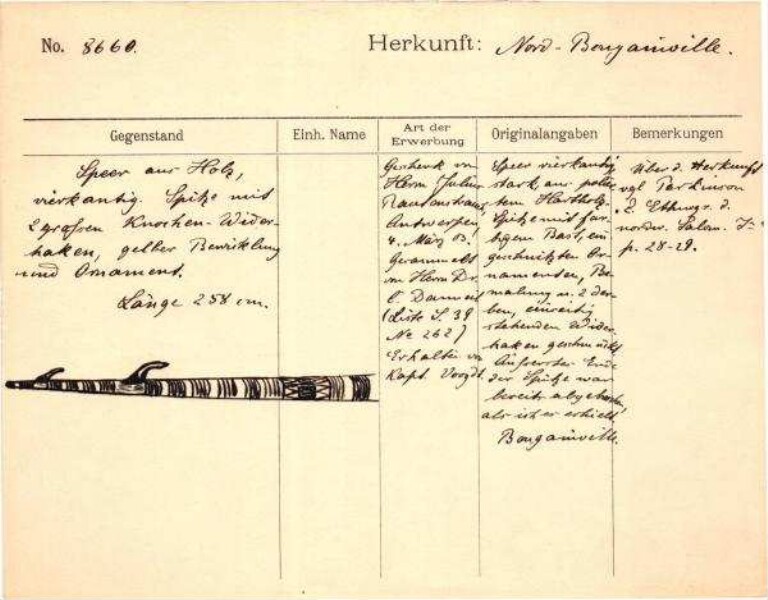 No. 8660.
Herkunft: Nord-Bougainville.
Gegenstand
Einh. Name
Art der
Erwerbung
Originalangaben
Bemerkungen
Speer aus Holz,
vierkantig. Spitze mit
2 großen Knochen-Wider-
haken, gelber Bewicklung
und Ornament.
Länge 258 cm.
Geschenk von
Herrn Julius
Antwerpen,
4. März 03.
Gesammelt
von Herrn Dr.
(Liste S. 39
No 262)
Erhalten von
Kapt. Voogdt.
Speer vierkantig,
stark, aus polier-
tem Hartholz.
Spitze mit far-
bigem Bast, ein
geschnitzten Or-
namenten, Be-
malung u. 2 der-
ben, einseitig
stehenden Wider-
haken geschmückt.
Äusserster Ende
der Spitze war
bereits abgebrochen,
als ich er erhielt.
Bougainville.
Über d. Herkunft
vgl. Parkinson
z. Ethnogr. d.
nordw. Salom. I
p. 28-29.